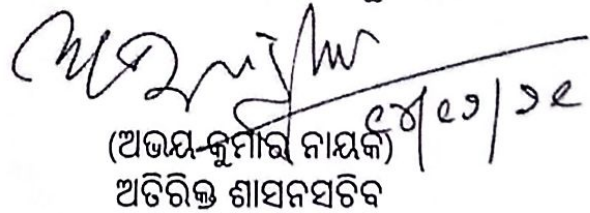 (ଅଭୟ କୁମାର ନାୟକ)
ଅତିରିକ୍ତ ଶାସନସଚିବ